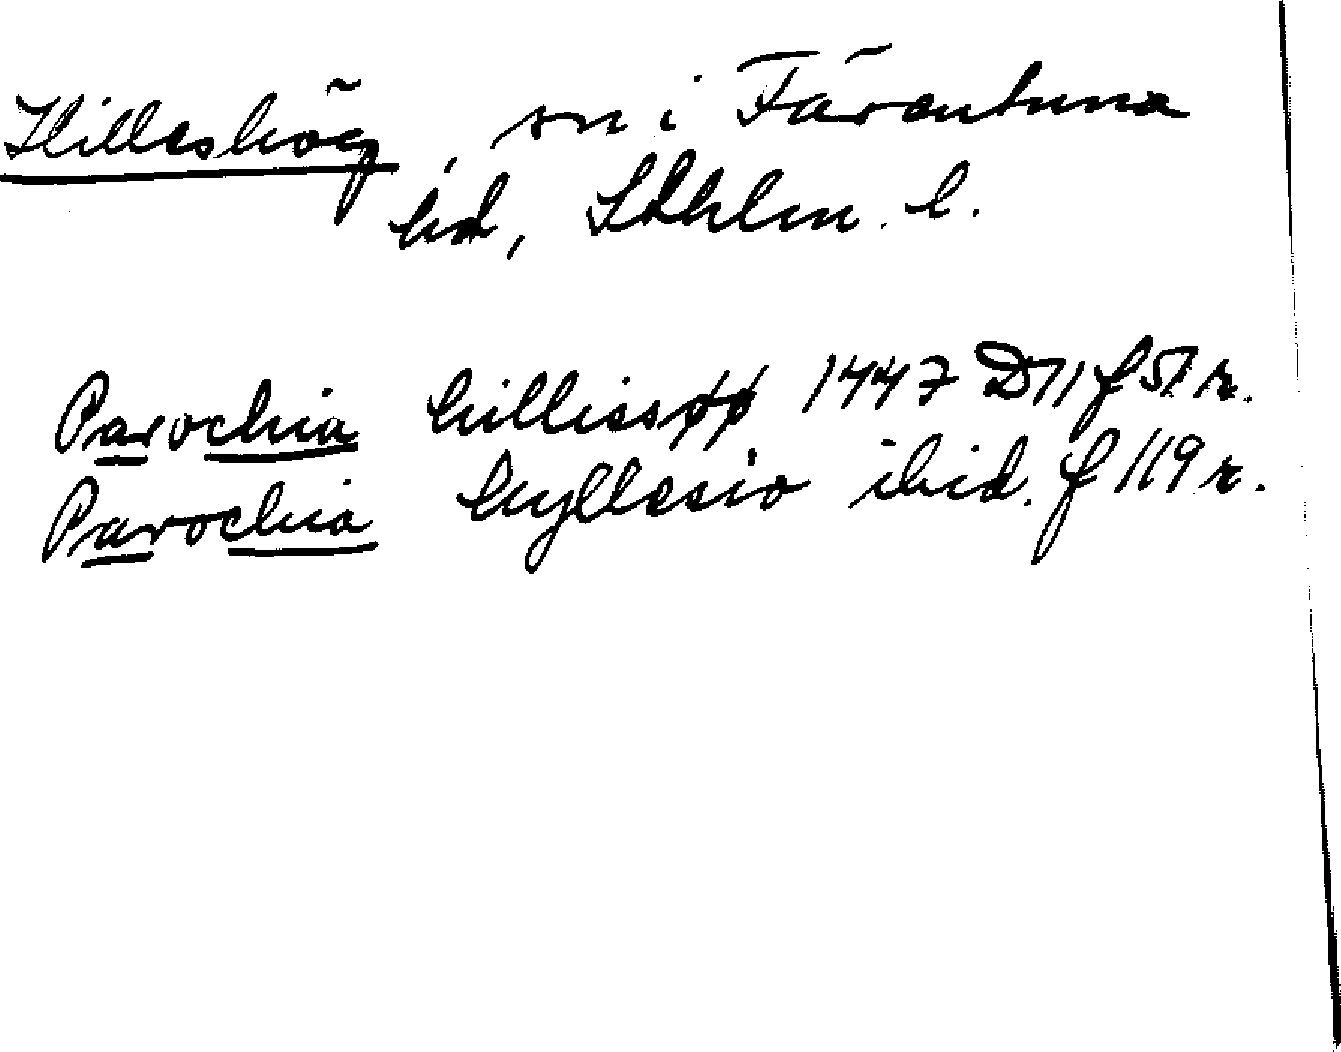 Hilleshög, sn i Färentuna
hd, Sthlm. l.
Parochia hillissøø 1447 D11 f 51 r.
Parochia hyllesio ibid. f 119 r.